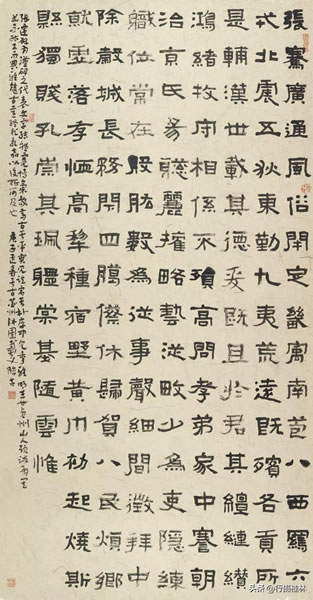 張騫廣通風俗開定畿寓南苞八西羈六
戎北震五狄東勤九夷荒遠既殯各貢所
是輔漢世載其德爰既且於君其繵縺纘
鴻緒牧守相係不殞高問孝弟家中謇朝
治京氏易聰麗權略藝從政少為吏隱練
職位常在股肱數為從事聲細聞徵拜中
除穀城長務閒四臈儌休歸賀八民煩鄉
就虛落存恤高犂種宿野黃巾初起燒斯
縣獨殘孔崇其珮疆棠基隨雲惟
頭条 @行摄桂林